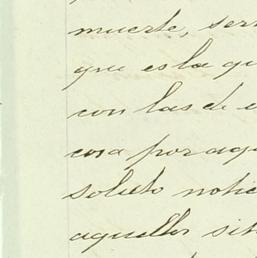 muerte, ser
que es la qu
con las de e
cosa por aqu
soluto notic
aquellos sit